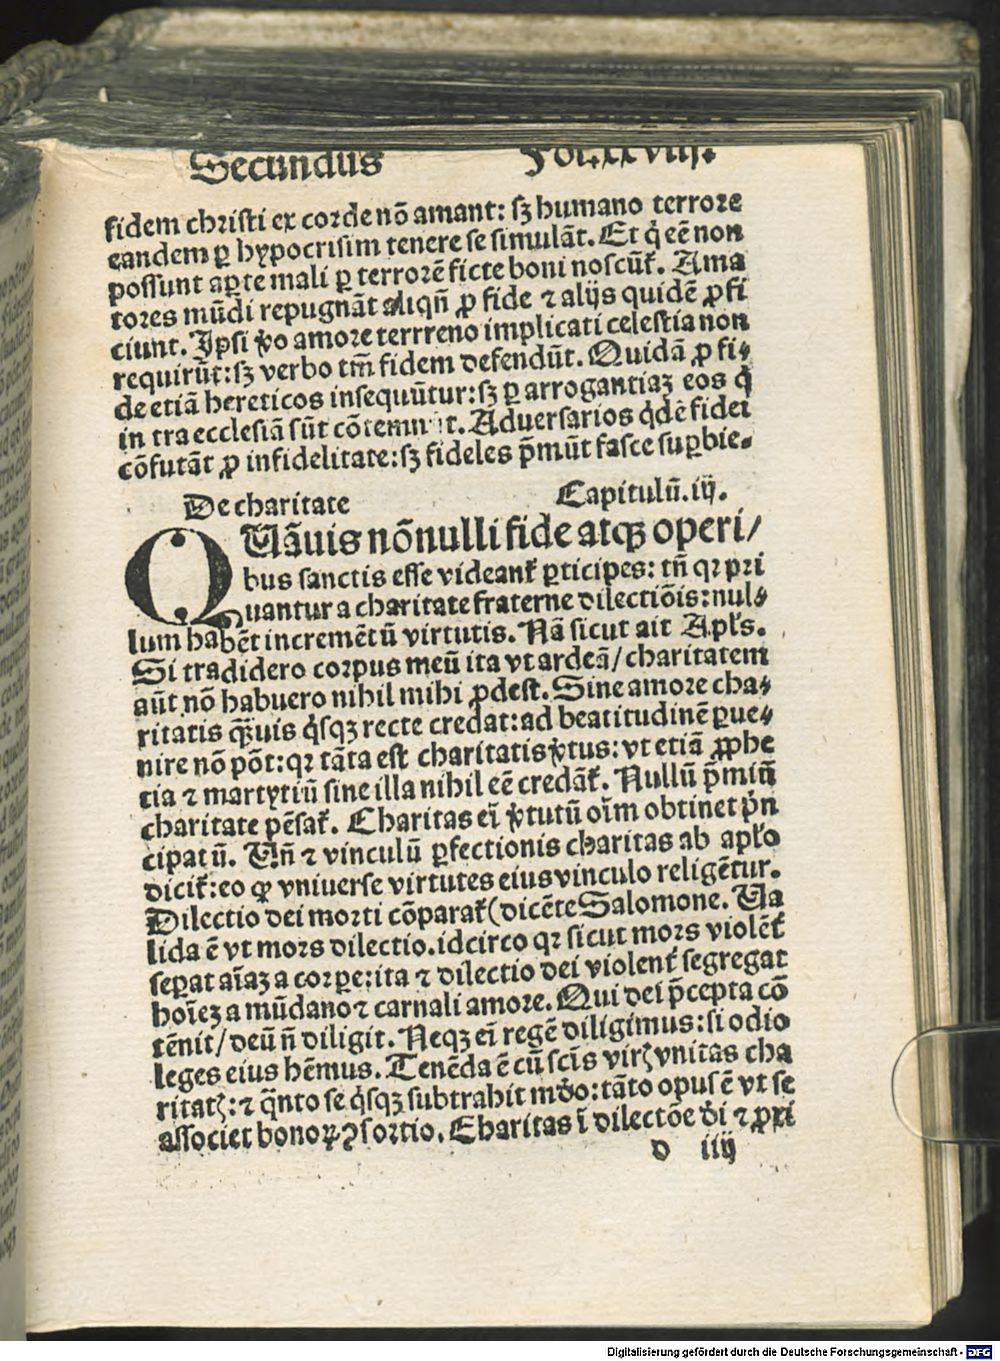 Secundus Fol.xxviij.
fidem christi ex corde nō amant: sꝫ humano terrore
eandem ꝑ hypocrisim tenere se simulāt. Et q̇ eē non
possunt aꝑte mali ꝑ terrorē ficte boni noscūt᷑. Ama
tores mūdi repugnāt aliqn̄ ꝓ fide ⁊ alijs quidē ꝓfi
ciunt. Ipsi v̆o amore terrreno implicati celestia non
requirūt: sꝫ verbo tm̄ fidem defendūt. Quidā ꝓ fi⸗
de etiā hereticos insequūtur: sꝫ ꝑ arrogantiaꝫ eos q̇
in tra ecclesiā sūt cōtemn t. Aduersarios q̇dē fidei
cōfutāt ꝓ infidelitate: sꝫ fideles p̄mūt fasce suꝑbie.
De charitate Capitulū. iij.
QUāuis nōnulli fide atqꝫ operi/
bus sanctis esse videant᷑ ꝑticipes: tn̄ qꝛ pri
uantur a charitate fraterne dilectiōis: nul⸗
lum habēt incremētū virtutis. Nā sicut ait Apl's.
Si tradidero corpus meū ita vt ardeā/ charitatem
aūt nō habuero nihil mihi ꝓdest. Sine amore cha⸗
ritatis q̄uis q̇sqꝫ recte credat: ad beatitudinē ꝑue⸗
nire nō pōt: qꝛ tāta est charitatis v̆tus: vt etiā ꝓphe
tia ⁊ martyriū sine illa nihil eē credāt᷑. Nullū p̄miū
charitate pēsat᷑. Charitas ei᷑ v̆tutū oīm obtinet p̄n
cipatū. Un̄ ⁊ vinculū ꝑfectionis charitas ab apl'o
dicit᷑: eo ꝙ vniuerse virtutes eius vinculo religētur.
Dilectio dei morti cōparat᷑ (dicēte Salomone. Ua
lida ē vt mors dilectio. idcirco qꝛ sicut mors violēt᷑
seꝑat aīaꝫ a corpe: ita ⁊ dilectio dei violent᷑ segregat
hoīeꝫ a mūdano ⁊ carnali amore. Qui dei p̄cepta cō
tēnit/ deū n̄ diligit. Neqꝫ ei᷑ regē diligimus: si odio
leges eius hēmus. Tenēda ē cū scīs virꝫ vnitas cha
ritatꝫ: ⁊ q̄nto se q̇sqꝫ subtrahit mūdo: tāto opus ē vt se
associet bonoꝝ ꝯsortio. Charitas ī dilectōe dī ⁊ ꝓxi
d iiij
Digitalisierung gefördert durch die Deutsche Forschungsgemeinschaft - DFG